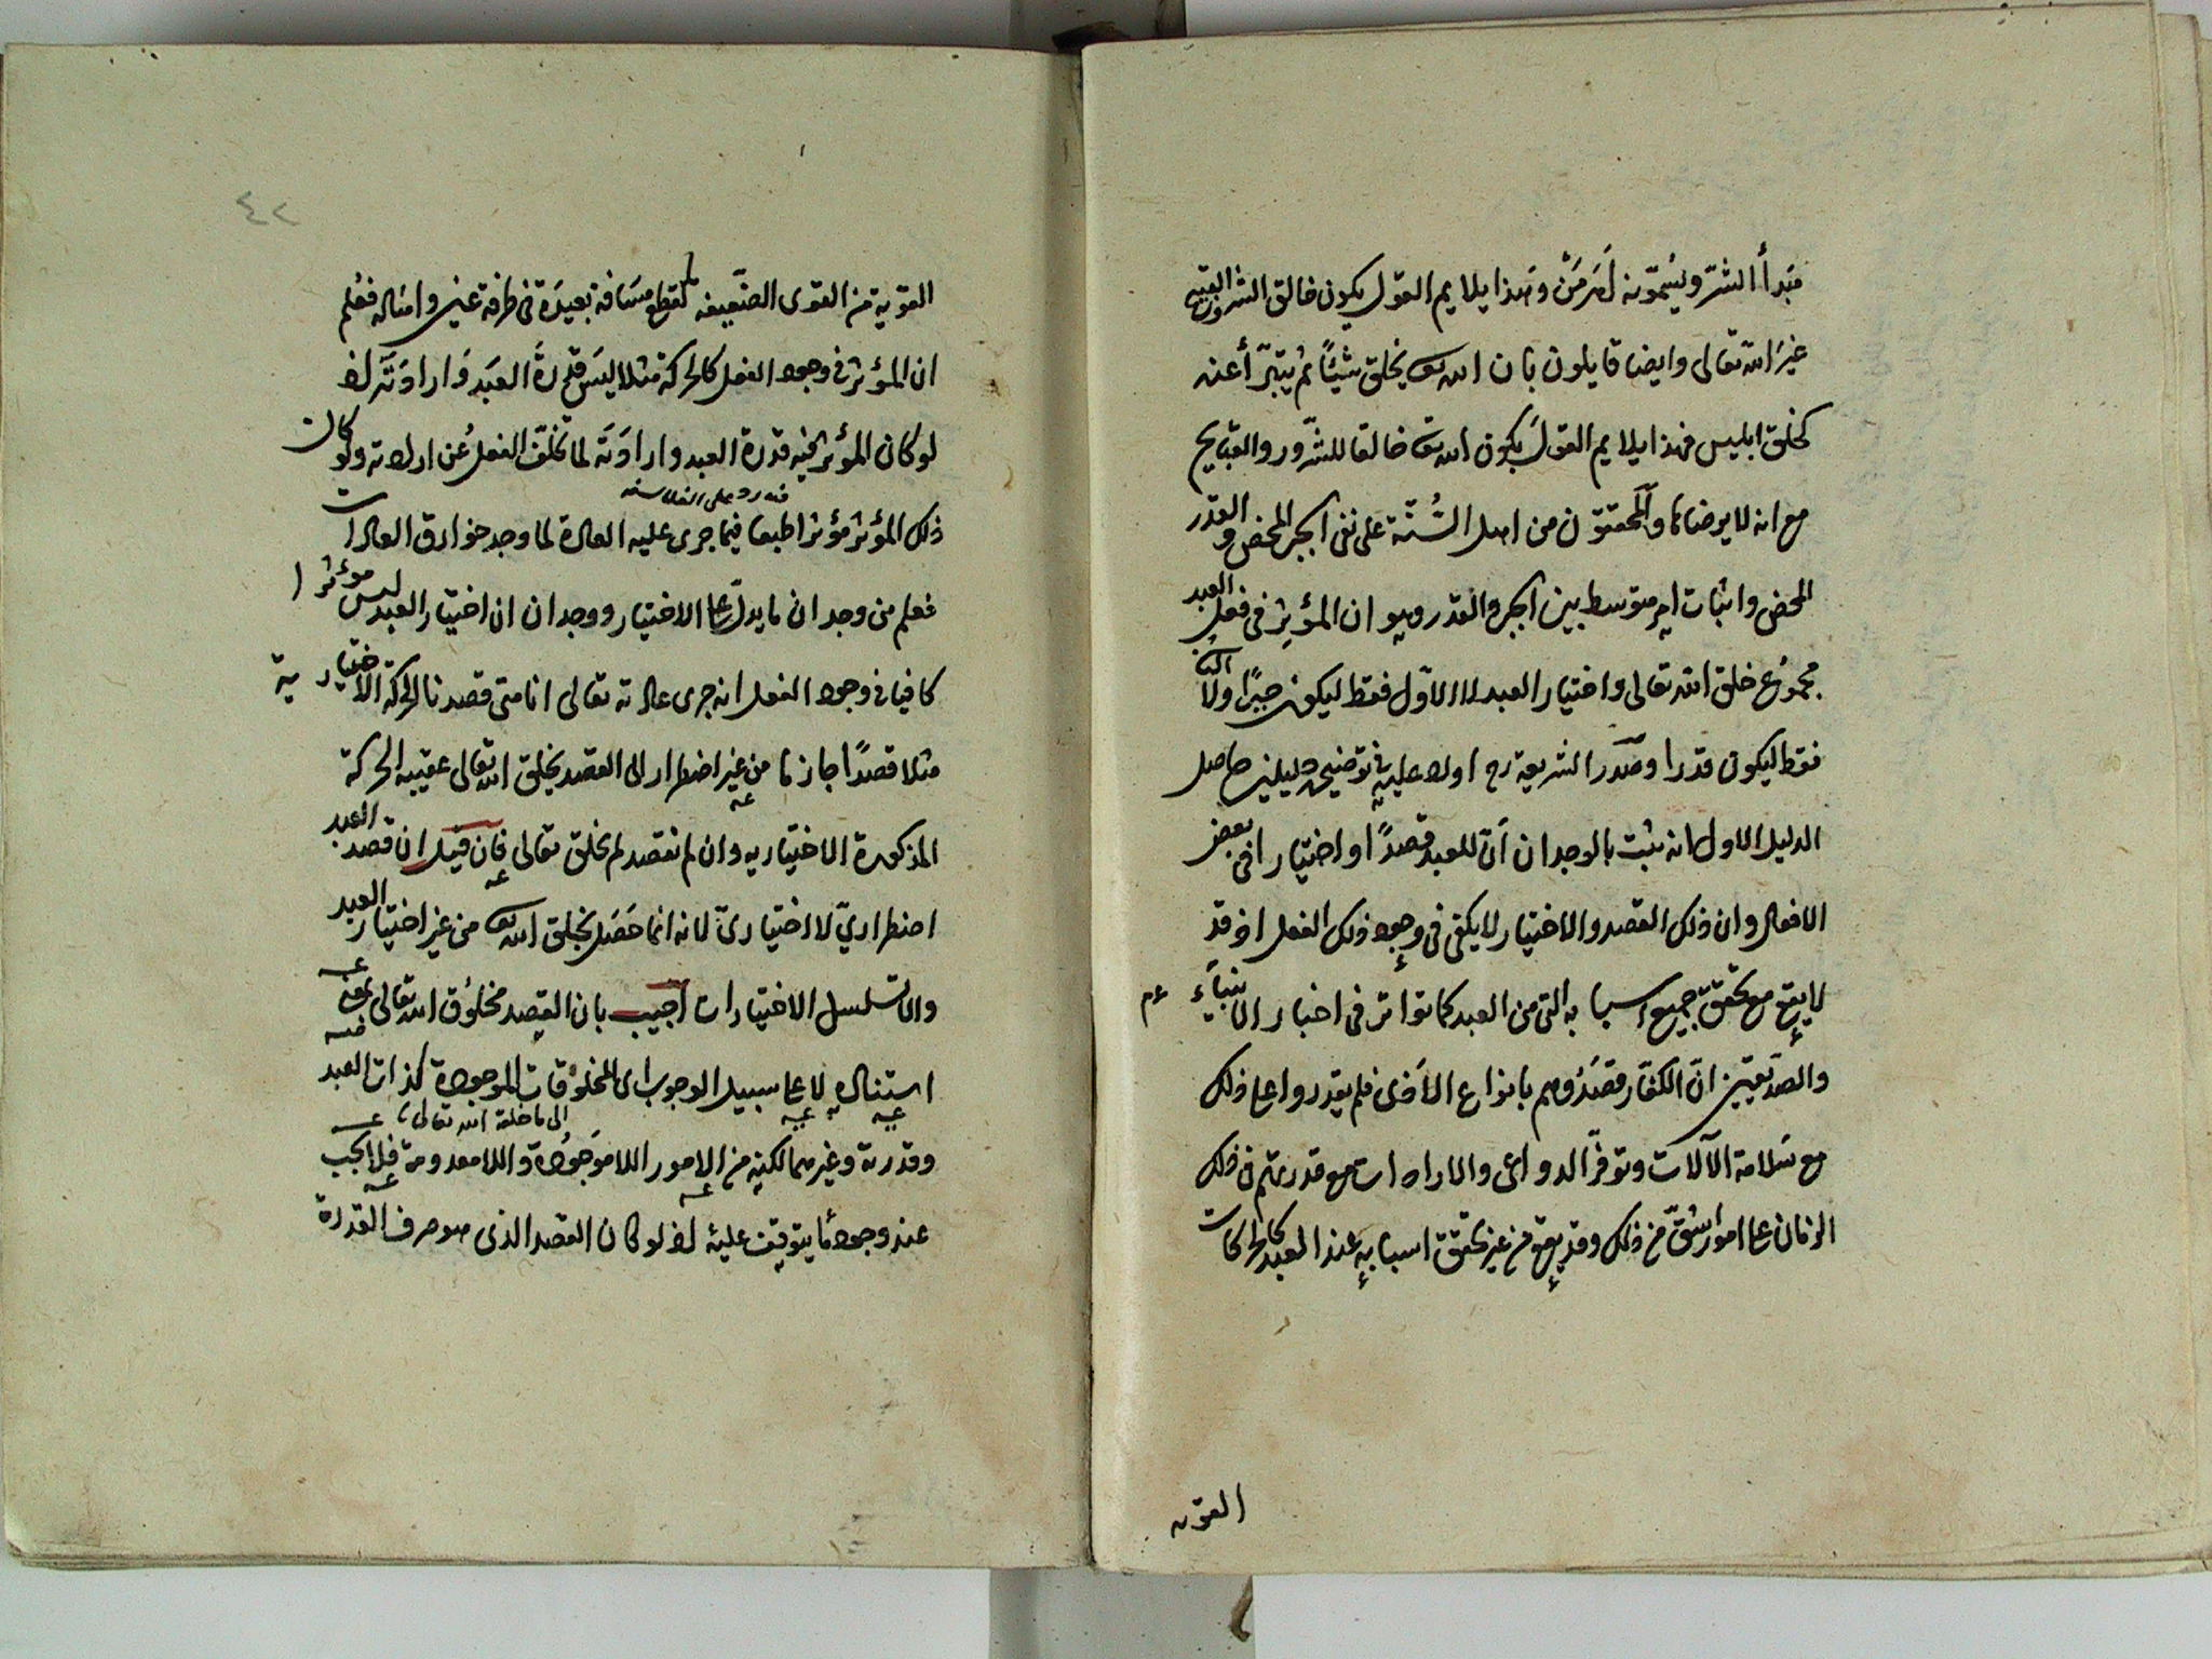 مَبدأ الشرّ ويُسمّونه أَهرَمَنْ وهذا يلايم القول بكون خالق الشرور والقبيح
غيرَ الله تعالى وايضا قايلون بان الله تع يخلق شيئًا ثم يتبرّأ عنه
كخلق ابليس فهذا يلايم القولَ بكون الله تع خالقا للشّرور والقبايح
مع انه لا يرضاها والمحققون من اهل السُّنّة على نفى الجبر المحض والقدر
المحض واثبات امر متوسط بين الجبر والقدر وهو ان المؤثر فى فعل العبد
مجموع خلق الله تعالى واختيار العبد لا الاوّل فقط ليكون جبرًا ولا الثانى
فقط ليكون قدرا وصَدر الشريعة رح اورد عليه فى توضيحه دليلين حاصل
الدليل الاول انه ثبت بالوجدان أنّ للعبد قصدًا او اختيارا فى بعض
الافعال وان ذلك القصد والاختيار لا يكفى فى وجود ذلك الفعل اذ قد
لا يقع مع تحقق جميع اسبابه التى من العبد كما تواتر فى اخبار الانبياء ءم
والصدّيقين انّ الكفّار قصَدُوهم بانواع الأذى فلم يقدروا على ذلك
مع سَلامة الآلات وتوفّر الدواعى والارادات مع قدرتهم فى ذلك
الزمان على امور اشقّ من ذلك وقد يقع من غير تحقق اسبابه عند العبد كالحركات
القوية
٤٢
القوية من القوى الضّعيفه كقطع مسَافة بعيدَة فى طرفة عين وامثاله فعُلم
ان المؤثر فى وجود الفعل كالحركة مثلا ليسَ قدرةَ العبَد وَارادَتَه اذ
لو كان المؤثر فيه قدرة العبد وارادَتَه لما تخلّف الفعلُ عن ارادته ولو كان
فيه رد على الفلاسفه
ذلك المؤثر مؤثرا طبعا فيما جرى عليه العادة لما وجد خوارق العادات
فعلم من وجدان ما يدلّ على الاختيار ووجدان ان اختيار العبد ليس موءثرا
كافيا فى وجود الفعل انه جرى عادته تعالى انا متى قصدنا الحركة الاختيارية
مثلا قصدًا جازما من غير اضطرار الى القصد يخلق الله تعالى عقيبه الحركة
المذكورة الاختياريه وان لم نقصد لم يخلق تعالى فان قيل ان قصد العبد
اضطراريّ لا اختيارىّ لانه انما حَصَل بخلق الله تع من غير اختيار العبد
والا تسلسل الاختيارات اجيب بان القصد مخلوق الله تعالى بمعنى
استناده لا على سبيل الوجوب الى المخلوقات الموجودة كذات العبد
الى ما خلقه الله تعالى
وقدرته وغيرهما لكنه من الامور اللاموَجُودة واللامعدومة فلا يجب
عند وجود ما يتوقف عليهِ اذ لو كان القصد الذى هو صرف القدرة